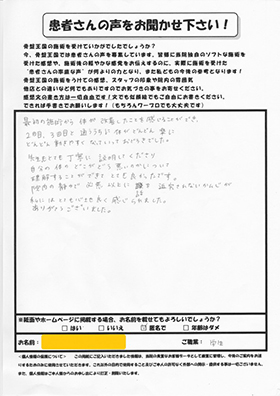 患者さんの声をお聞かせ下さい！
骨盤王国の施術を受けていかがでしたでしょうか？
今、骨盤王国では患者さんの声を募集しています。皆様に当院独自のソフトな施術を
受けた感想や、施術後の軽やかな感覚をお伝えするのに、実際に施術を受けた
"患者さんの率直な声" が何よりの力となり、また私どもの今後の参考となります！
骨盤王国の施術をうけての感想、スタッフの印象や院内の雰囲気
他店との違いなど何でもありますので気づきの事をお寄せください。
感想文の書き方は一切自由です！文でも似顔絵でもご自由にお書きください。
できれば手書きでお願いします！（もちろんワープロでも大丈夫です）
最初の施術から 体が 改善したことを感じることができ、
2回目、3回目と 通ううちに 体がどんどん 軽い
どんどん 動きやすくなっていっておどろきでした。
先生とても 丁寧に 説明してくださり
自分の体の どこが どう 悪いのかいつも
理解することができて とても良かったです。
院内の 静かで 必要以上に
私には とても心地良く 感じられました。
ありがとうございました。
※紙面やホームページに掲載する場合、お名前を載せてもよろしいでしょうか？
□はい □いいえ ☑匿名で □年齢はダメ
お名前： ご職業：
＜個人情報の保護について＞